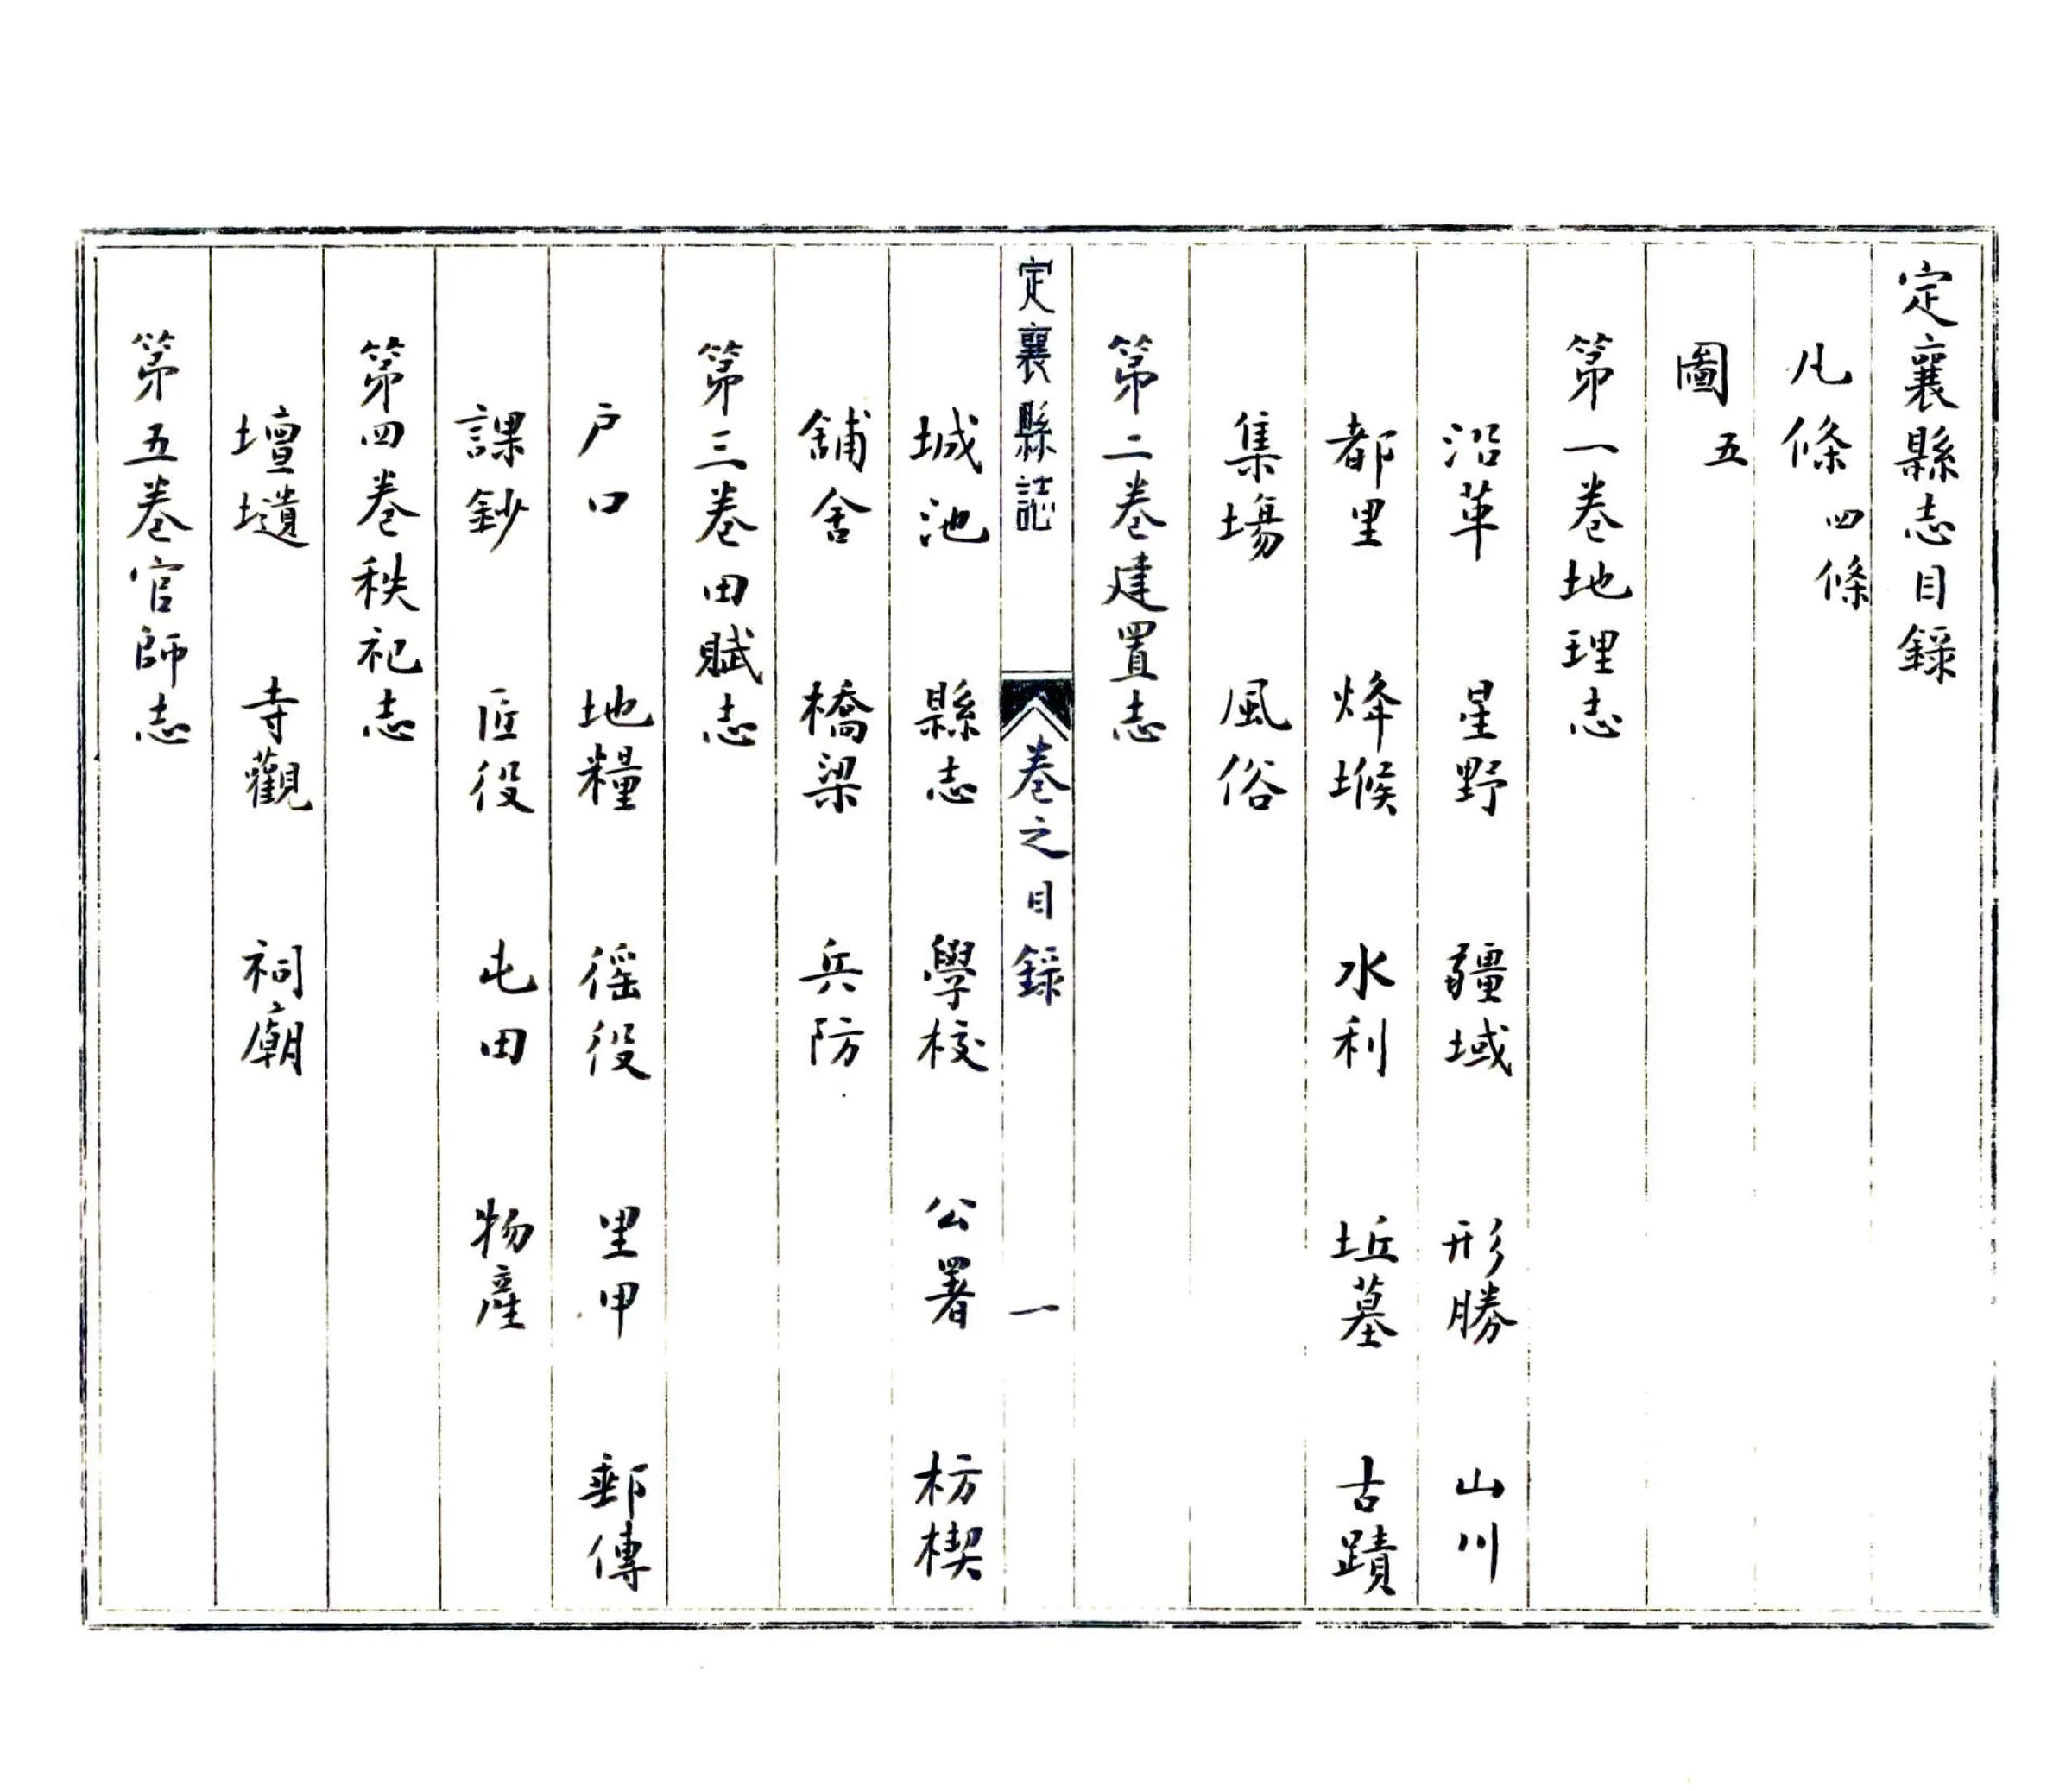 定襄縣志目錄
凡條 四條
圖 五
第一卷地理志
沿革 星野 疆域 形勝 山川
都里 烽堠 水利 坵墓 古蹟
集場 風俗
第二卷建置志
定襄縣誌 卷之目錄 一
城池 縣志 學校 公署 枋楔
舖舍 橋梁 兵防
第三卷田賦志
户口 地糧 徭役 里甲 郵傳
課鈔 匠役 屯田 物產
第四卷秩祀志
壇壝 寺觀 祠廟
第五卷官師志